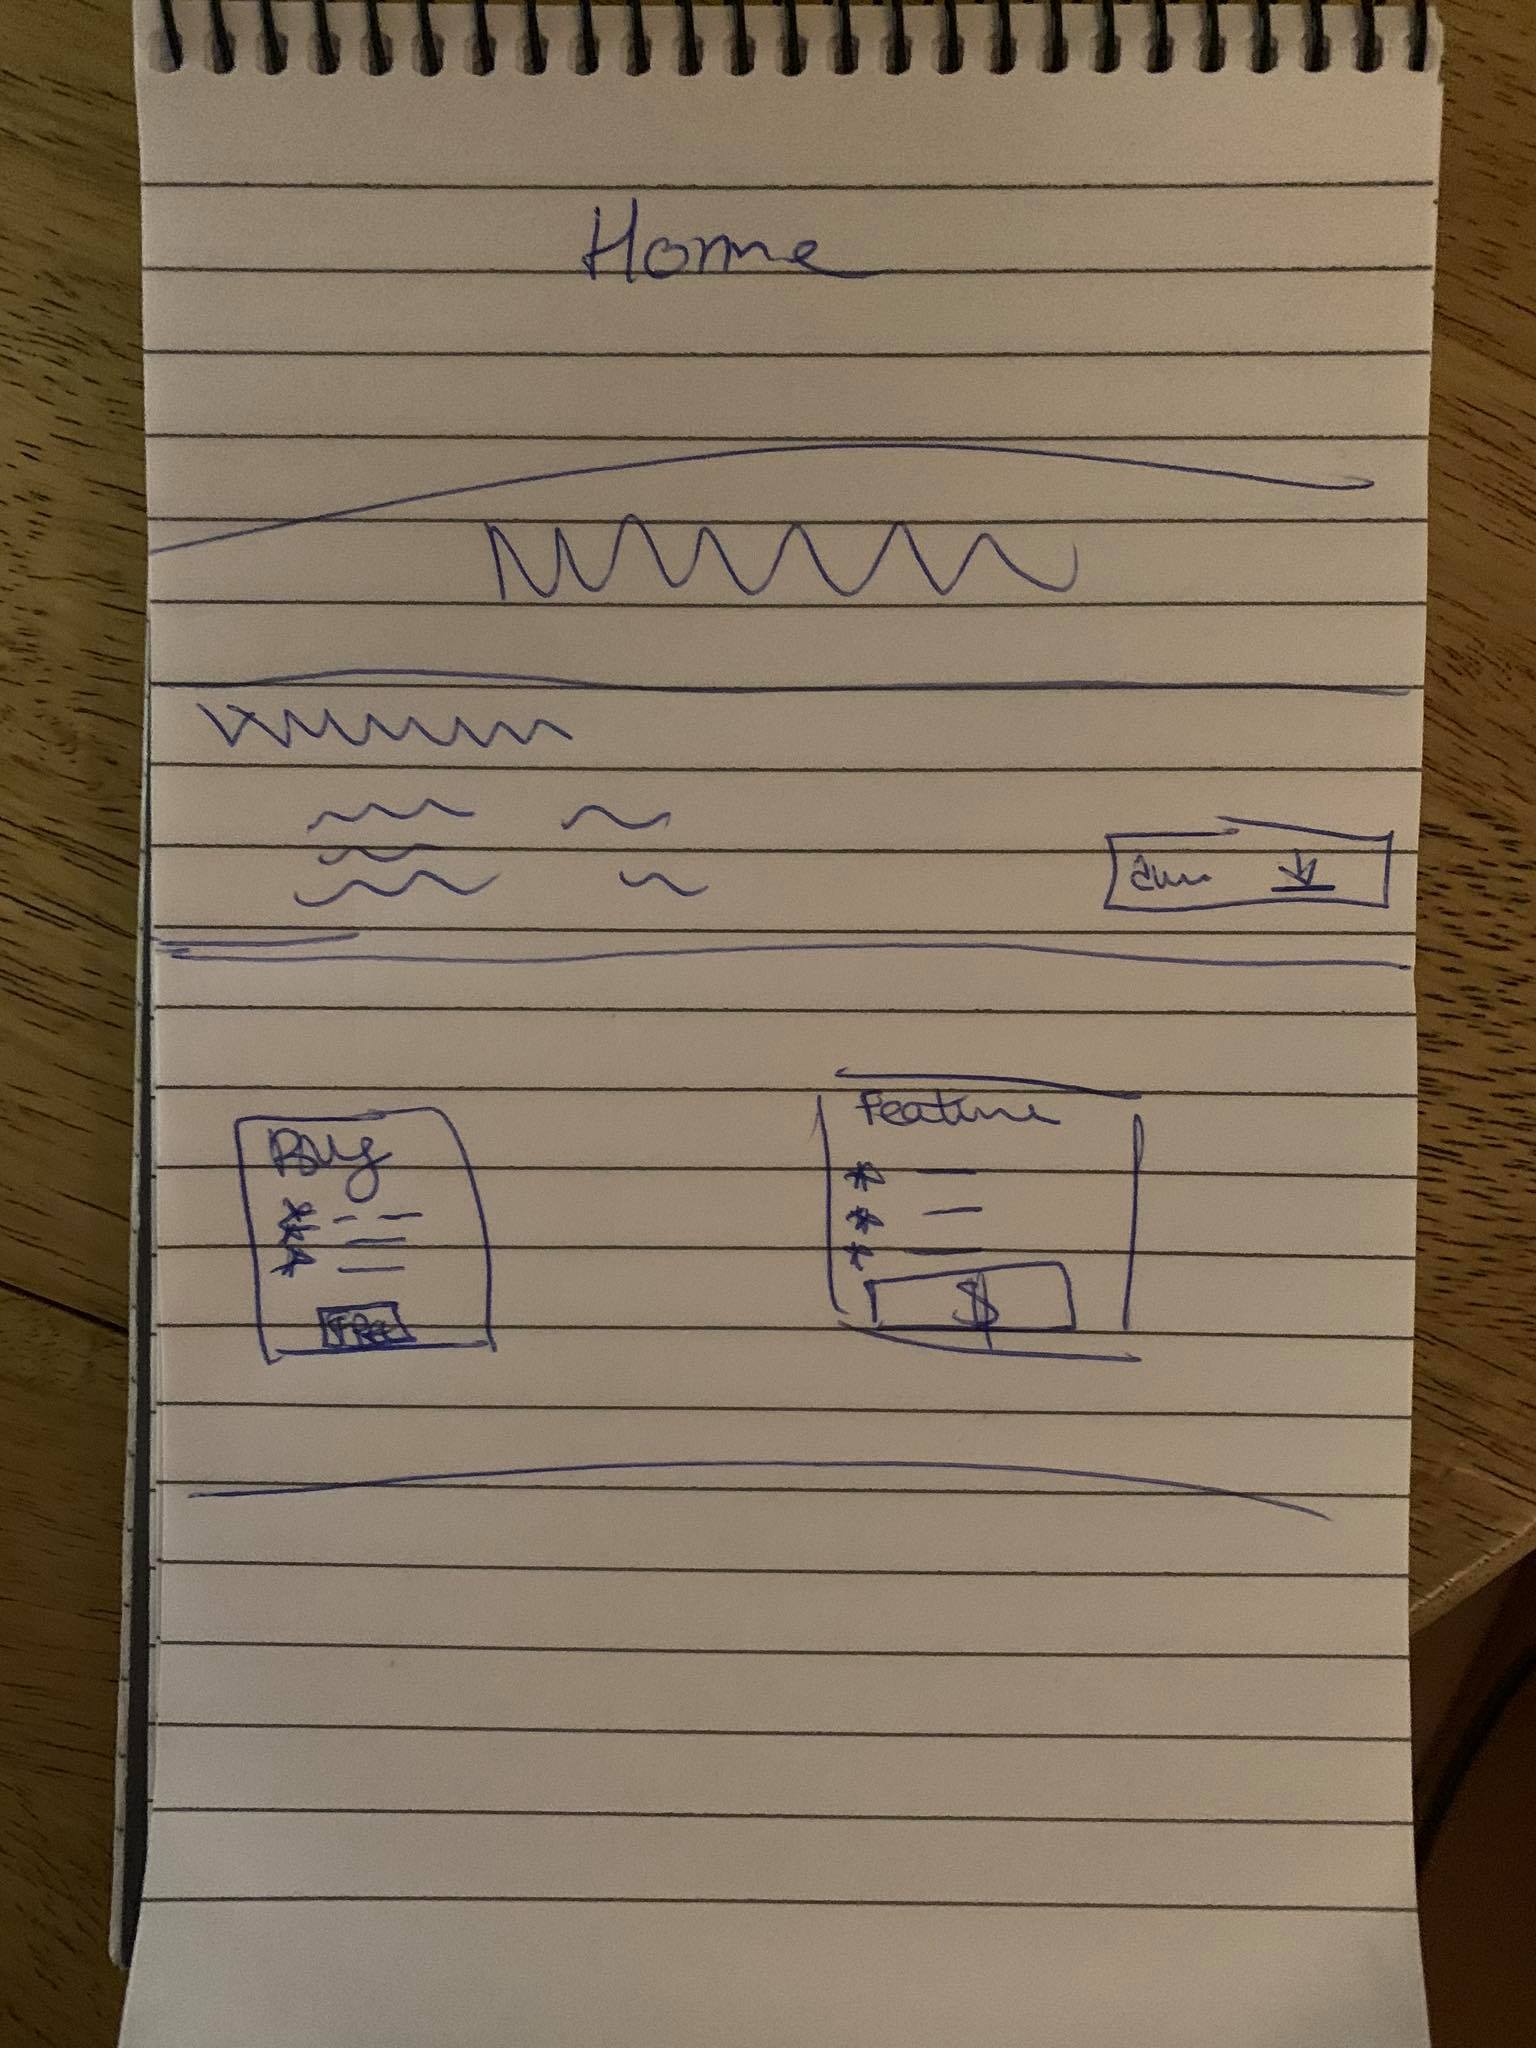 Home
Buy
Free
Feature
$